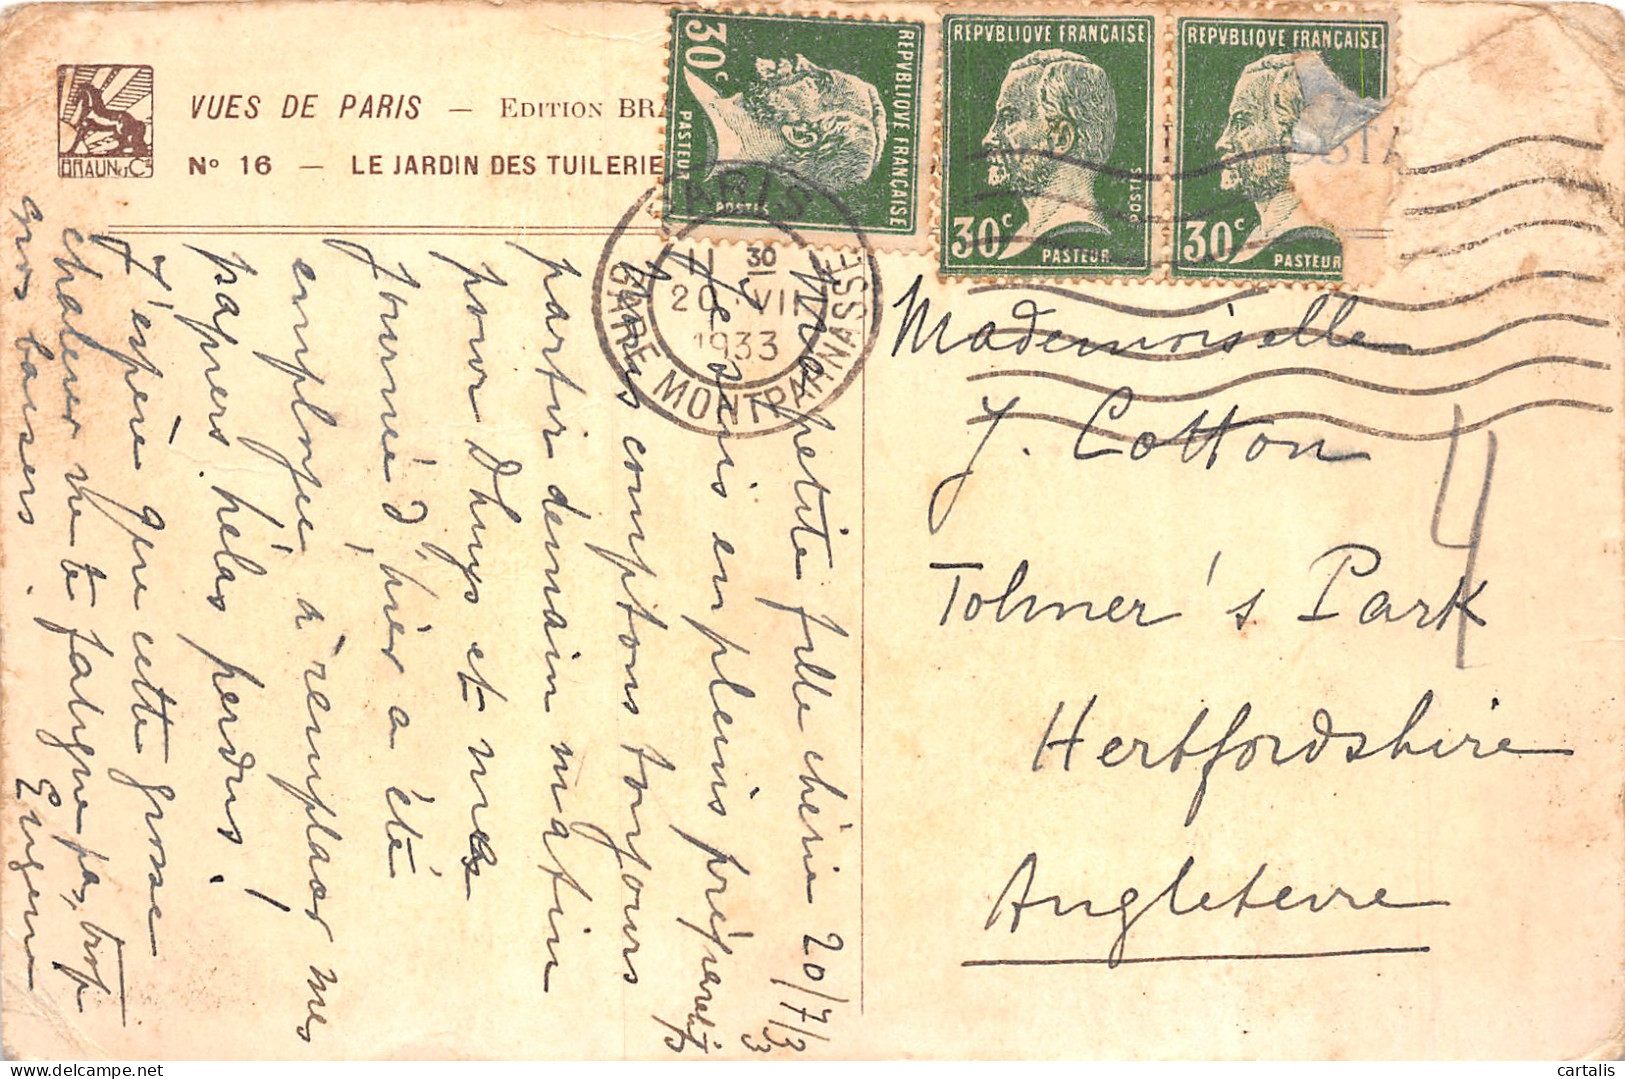 VUES DE PARIS — EDITION BRA
N° 16 — LE JARDIN DES TUILERIE
BRAUN & Cie
REPVBLIQVE FRANÇAISE
30c
POSTES
PASTEUR
REPVBLIQVE FRANÇAISE
30c
POSTES
PASTEUR
REPVBLIQVE FRANÇAISE
30c
PASTEUR
OSTA
PARIS
11 30
20 VII
1933
GARE MONTPARNASSE
Ma petite fille chérie 20/7/33
Je suis en pleins préparatifs
Nous comptons toujours
partir demain matin
pour Dhuys et ma
journée d'hier a été
employée à remplacer mes
papiers hélas perdus !
J'espère que cette grosse
chaleur ne te fatigue pas trop
gros baisers. Eugénie
Mademoiselle
J. Cotton
Tolmer's Park
Hertfordshire
Angleterre
4
cartalis